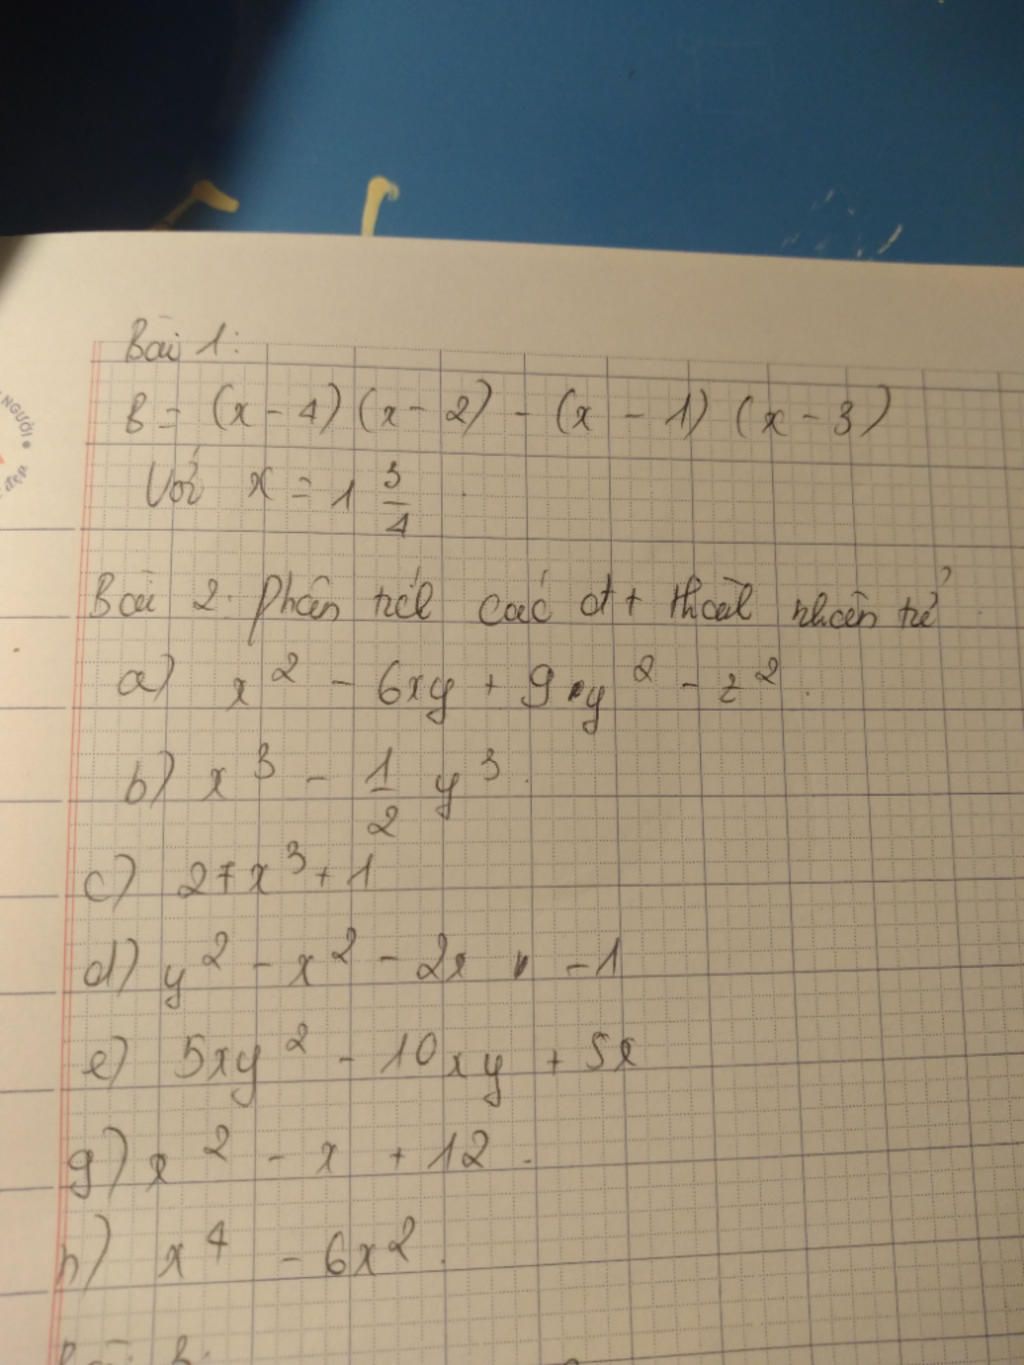 NGƯỜI
đẹp
Bài 1:
B = (x - 4) (x - 2) - (x - 1) (x - 3)
Với x = 1 3/4.
Bài 2: Phân tích các đt + thành nhân tử.
a) x² - 6xy + 9y² - z².
b) x³ - 1/2 y³.
c) 27x³ + 1
d) y² - x² - 2x - 1
e) 5xy² - 10xy + 5x
g) x² - x + 12.
h) x⁴ - 6x².